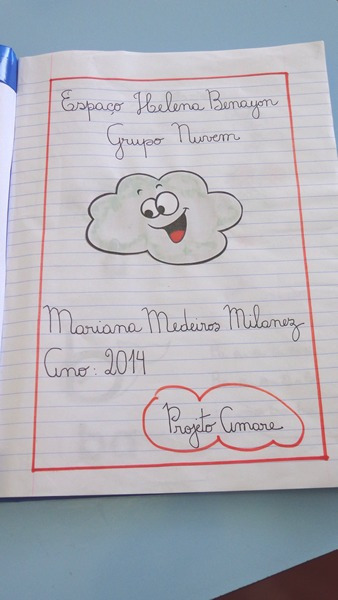 Espaço Helena Benayon
Grupo Nuvem
Mariana Medeiros Milanez
Ano: 2014
Projeto Amare